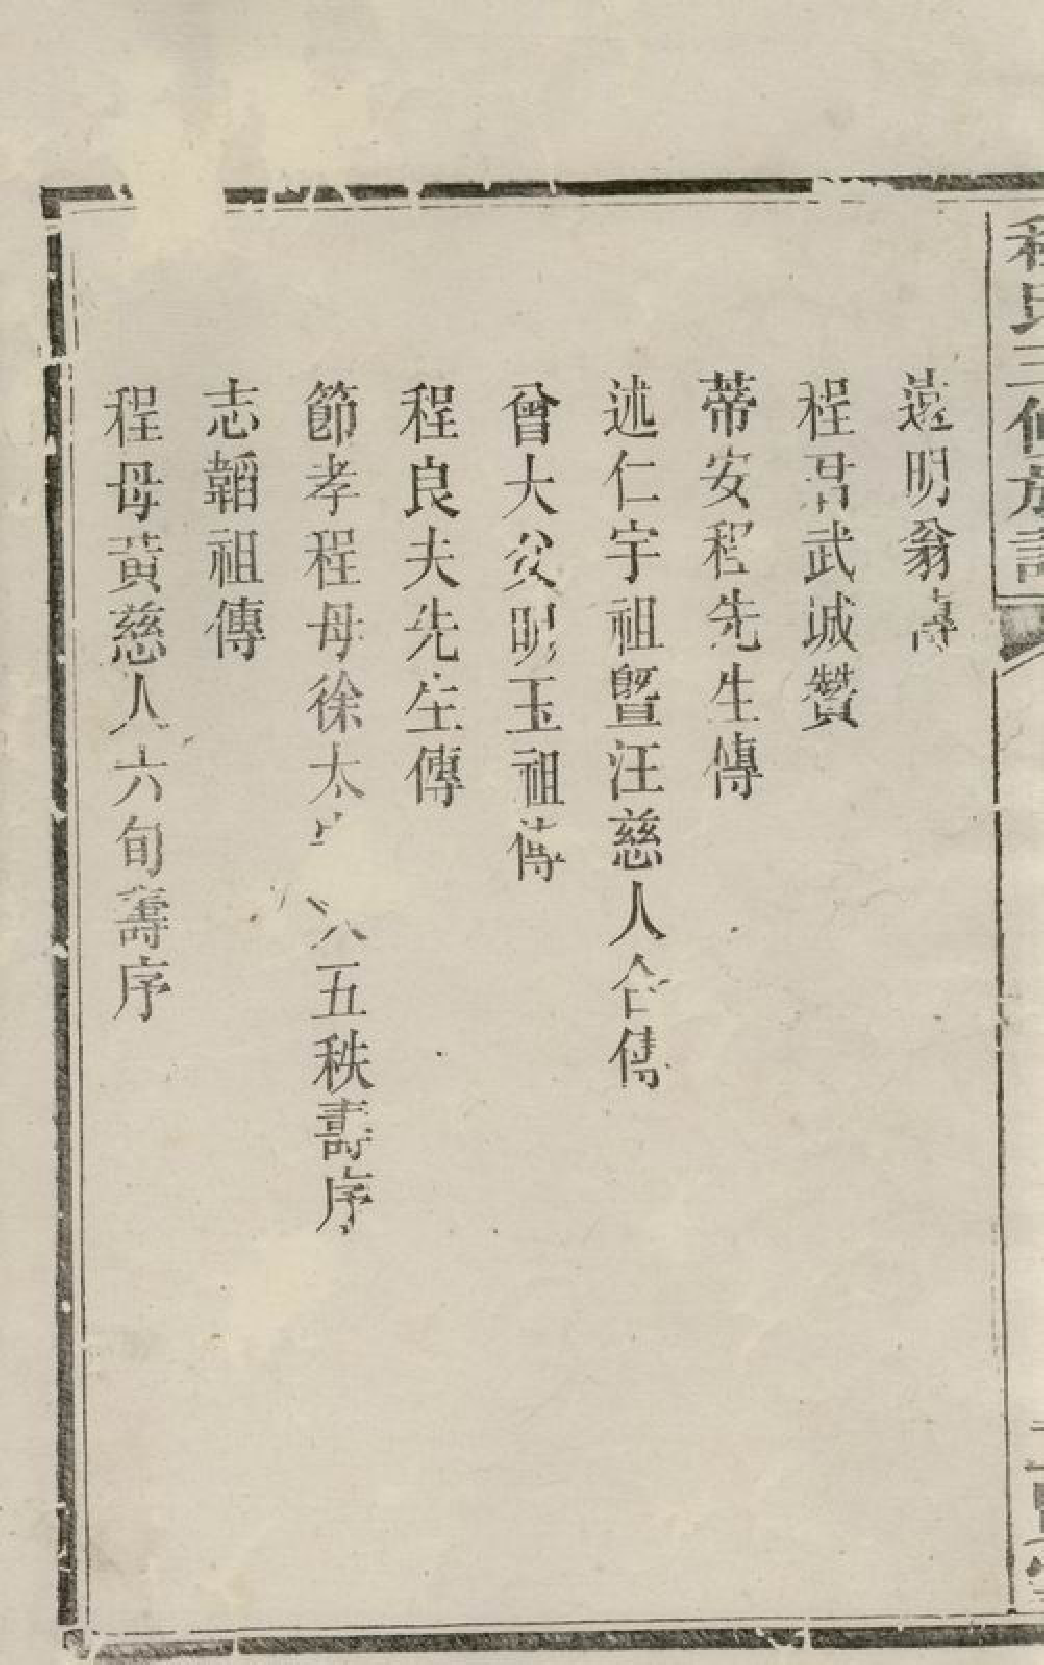 程氏三修族譜
遠明翁傳
程君武城贊
蒂安程先生傳
述仁宇祖暨汪慈人合傳
曾大父明玉祖傳
程良夫先生傳
節孝程母徐太 五秩壽序
志韜祖傳
程母黃慈人六旬壽序